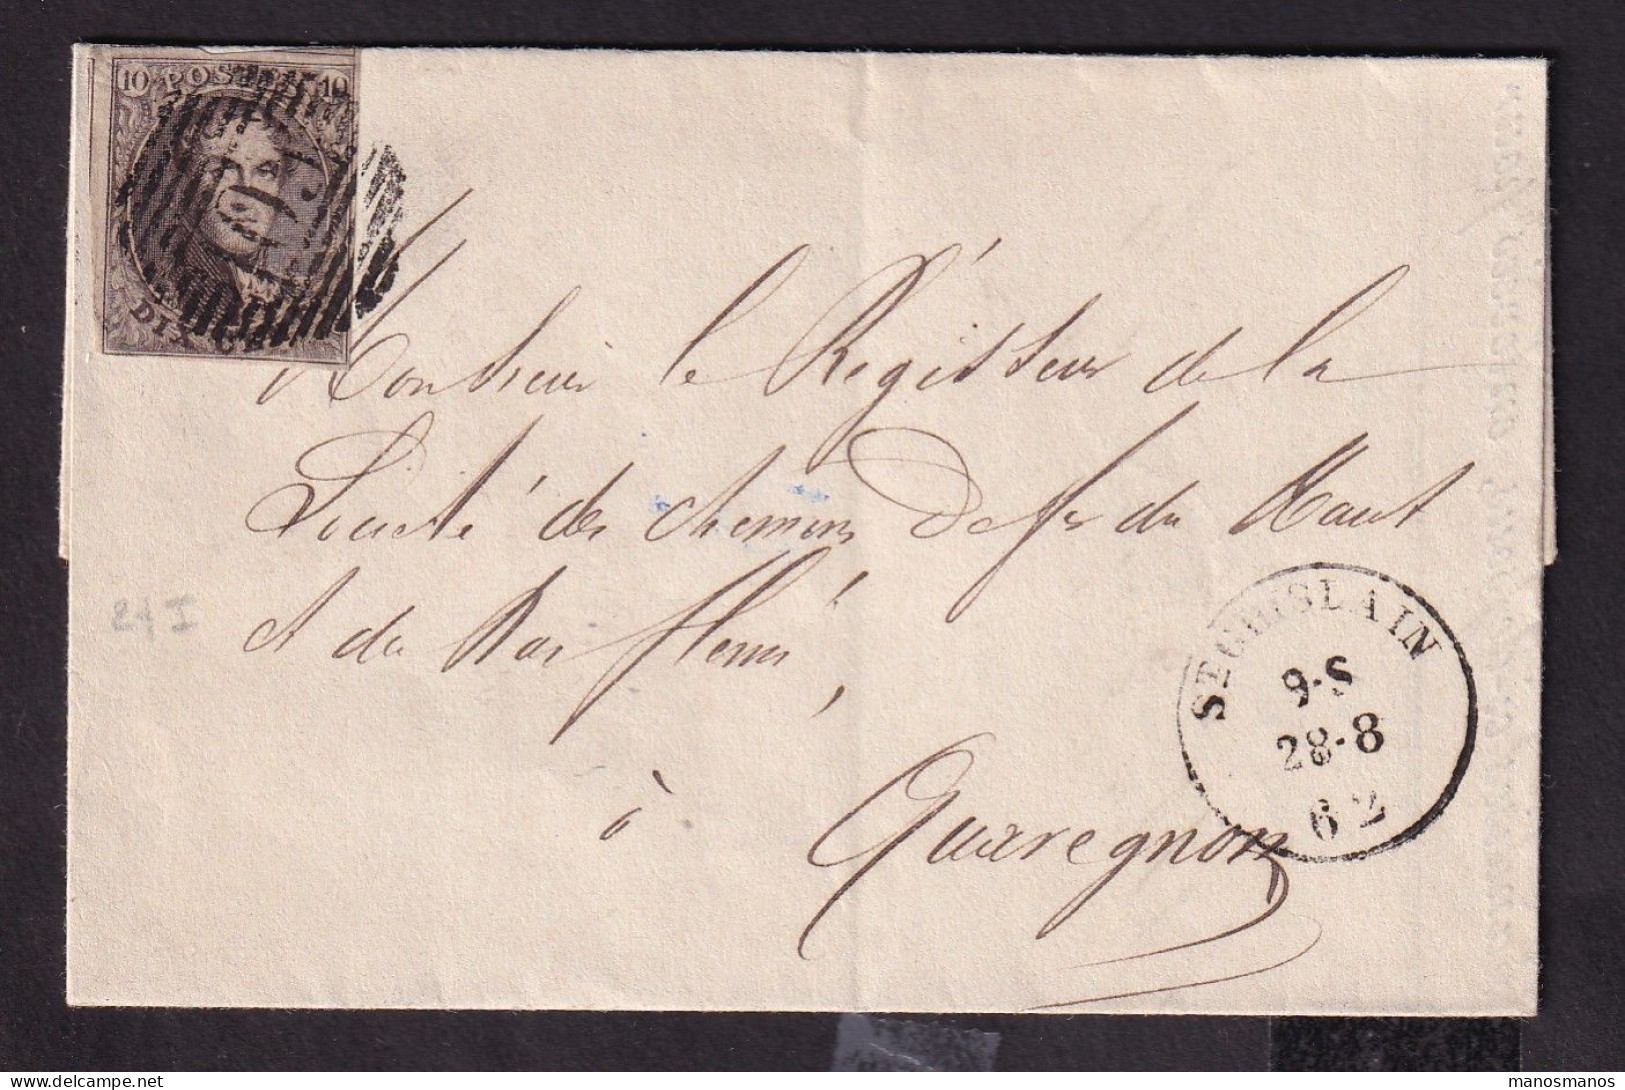 10 POSTES 10
DIX CE
Monsieur le Régisseur de la
Société des Chemins de fer du Haut
et du Bas flenu,
à Quaregnon
ST GHISLAIN
9·S
28·8
62
manosmanos